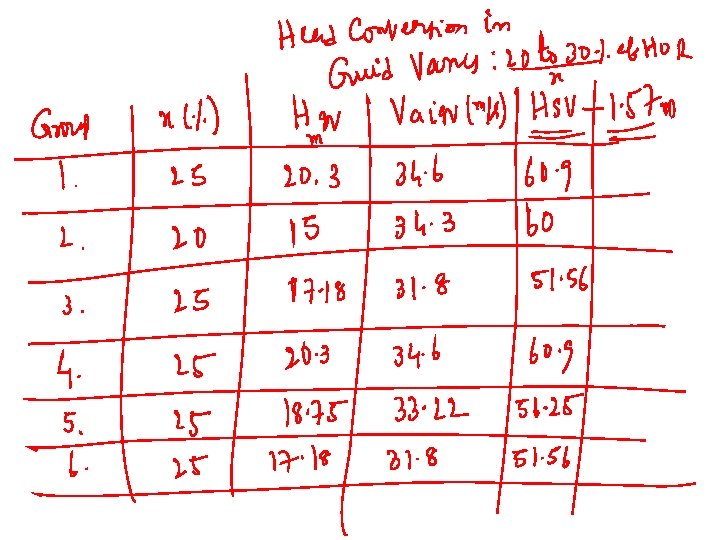 Head Conversion in
Guid Vanes : 20 to 30 % of HOR
x
Group x (%) Hgv m Vaigv (m/s) Hsv + 1.57 m
1. 25 20.3 34.6 60.9
2. 20 15 34.3 60
3. 25 17.18 31.8 51.56
4. 25 20.3 34.6 60.9
5. 25 18.75 33.22 56.25
6. 25 17.18 31.8 51.56